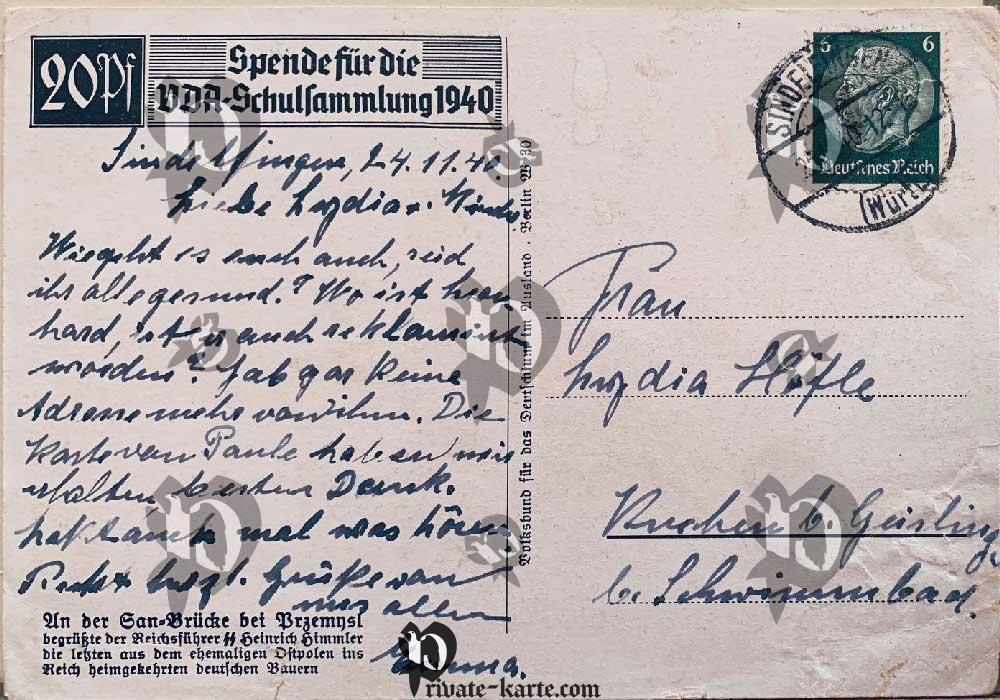 20Pf
Spende für die
VDA-Schulsammlung 1940
Sindelfingen, 24.11.40.
Liebe Lydia u. Kinder
Wie geht es euch auch, seid
ihr alle gesund? Wo ist
hard, ist er auch reklamiert
worden? Hab gar keine
Adresse mehr von ihm. Die
Karte von Paule haben wir
erhalten besten Dank.
mal was hören
Recht herzl. Grüße von
uns allen
Emma.
An der San-Brücke bei Przemysl
begrüßte der Reichsführer SS Heinrich Himmler
die letzten aus dem ehemaligen Ostpolen ins
Reich heimgekehrten deutschen Bauern
Volksbund für das Deutschtum im Ausland · Berlin W 30
6 6
Deutsches Reich
SINDELFINGEN
(Württ)
Frau
Lydia Höfle
Kuchen b. Geisling
b. Schwimmbad.
Private-karte.com